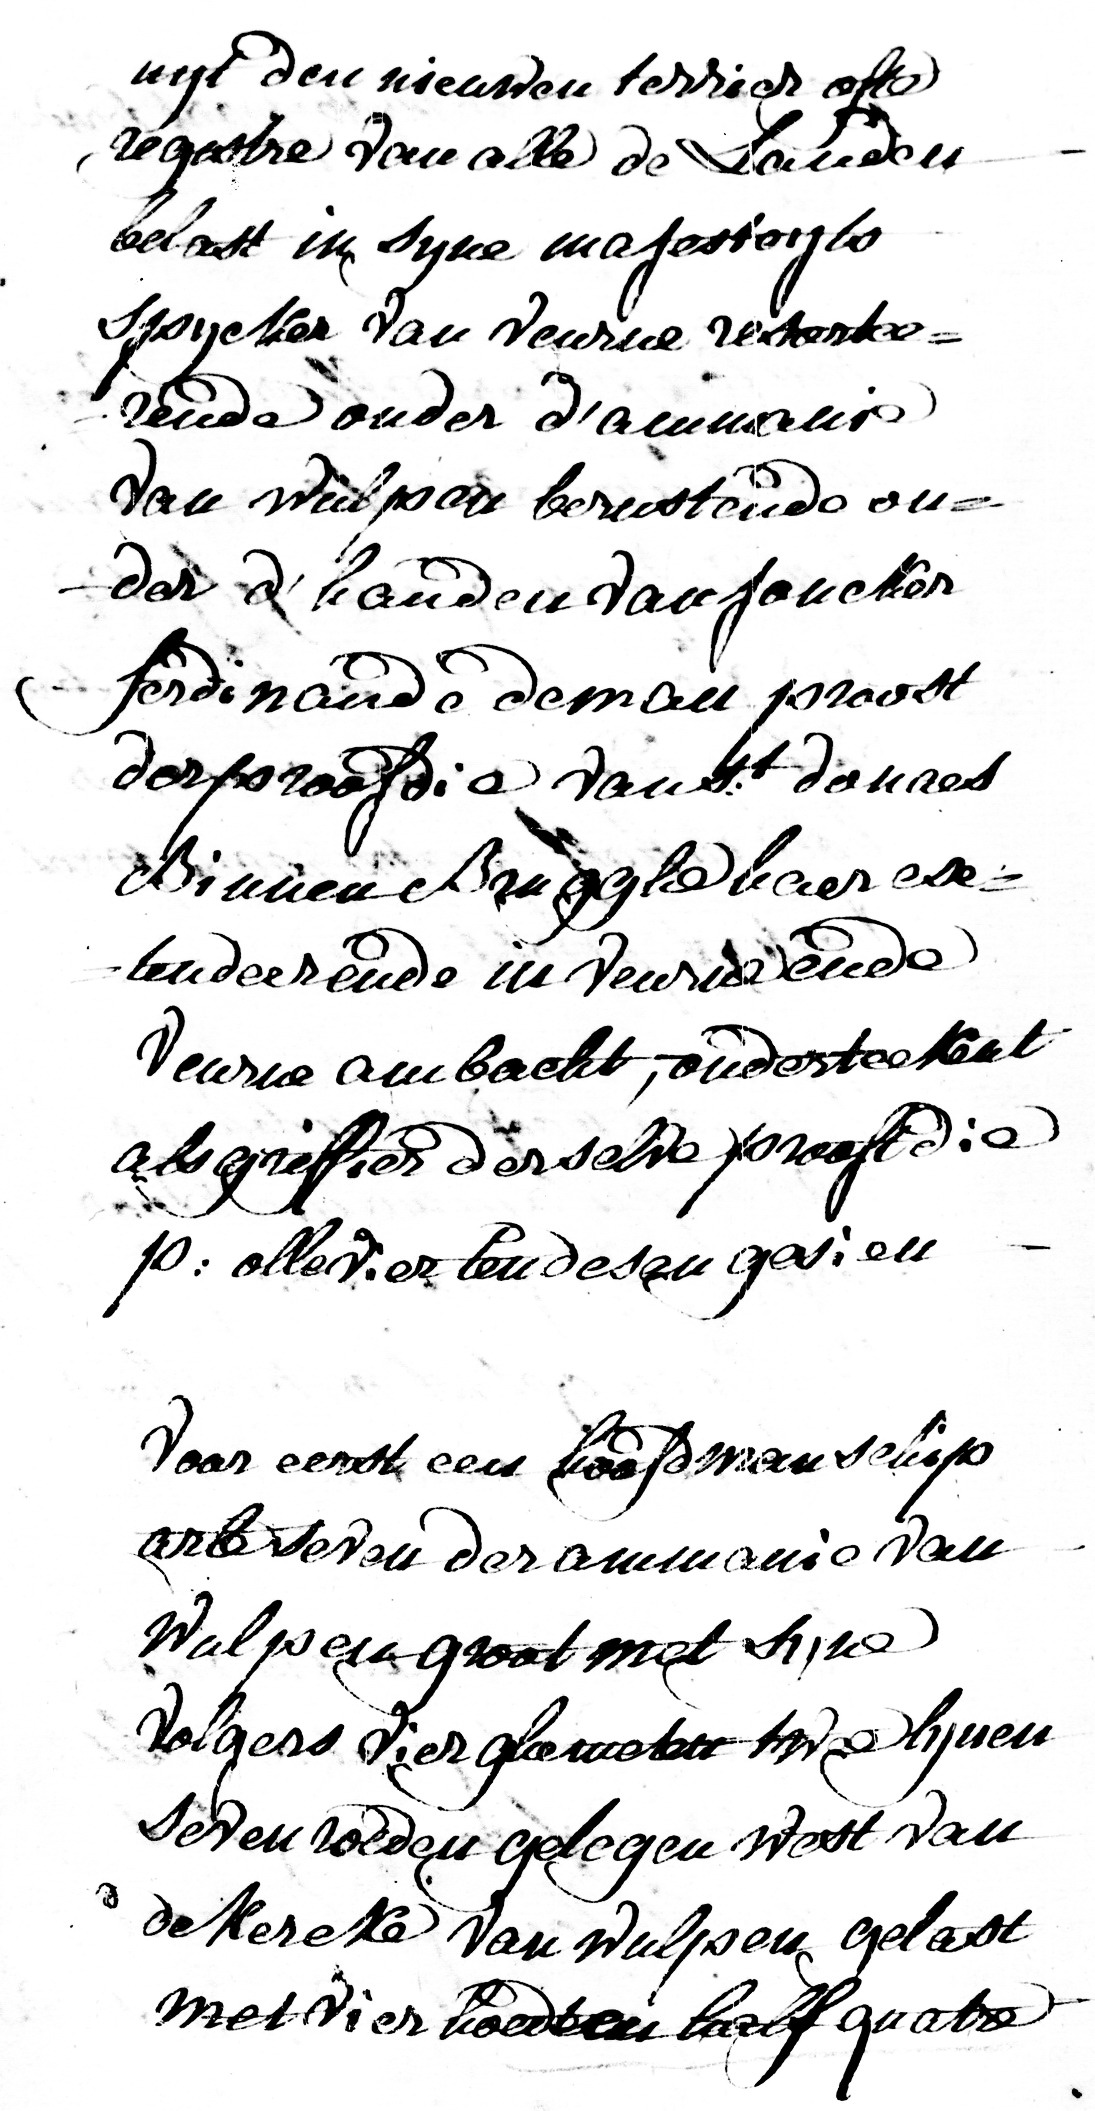 uyt den nieuwen terrier ofte
registre van alle de Landen
belast in syne majesteyts
spycker van veurne resortee=
rende onder d'ammanie
van wulpen berustende on=
der d'handen van joncker
ferdinande de man proost
der proosdie van St. donaes
Binnen Brugghe haer exe=
tendeerende in veurne ende
veurne ambacht, onderteekent
als greffier der selve proostdie
p: ollevier ten desen gesien
voor eerst een hoofdmanschip
seven der ammanie van
wulpen groot met syne
volgers vier ghemeten twe lynen
seven roeden gelegen west van
de kercke van wulpen gelast
met vier hoedten half quatre